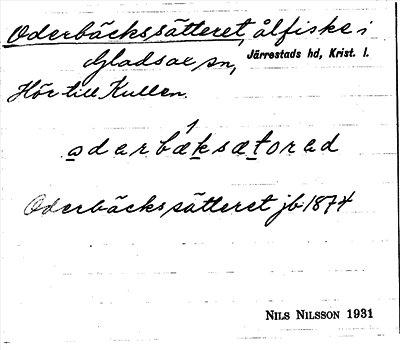 Oderbäckssätteret, ålfiske i
Gladsax sn, Järrestads hd, Krist. l.
Hör till Kullen.
odarbæksætorad
Oderbäckssätteret jb 1874
NILS NILSSON 1931